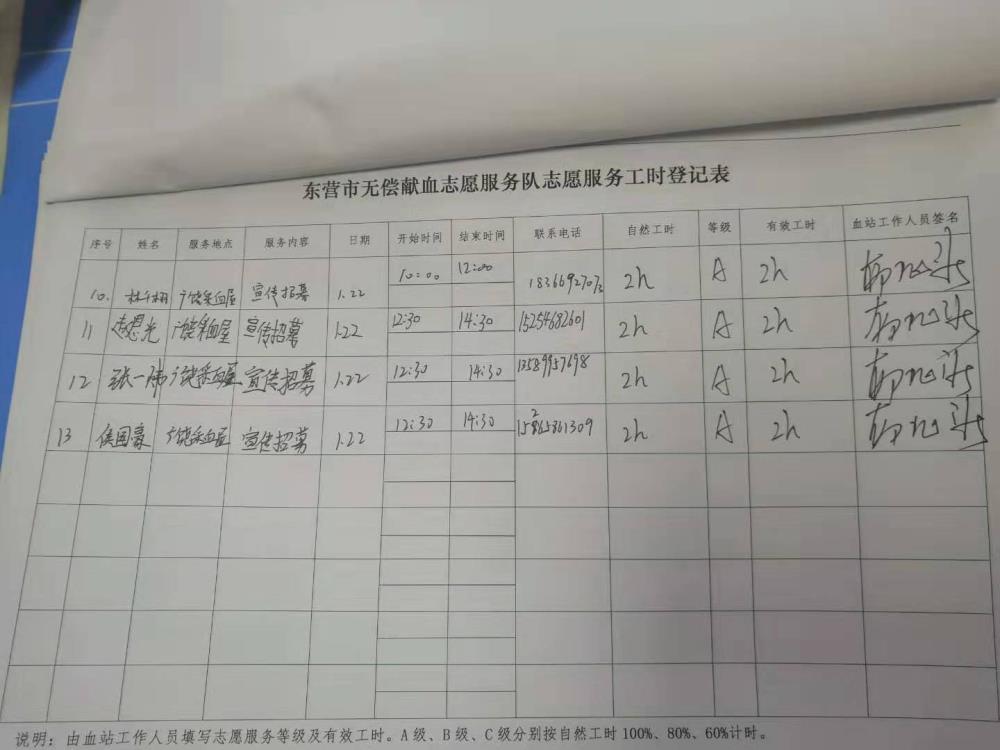 东营市无偿献血志愿服务队志愿服务工时登记表
序号 姓名 服务地点 服务内容 日期 开始时间 结束时间 联系电话 自然工时 等级 有效工时 血站工作人员签名
10. 广饶采血屋 宣传招募 1.22 10:00 12:00 2h A 2h
11 赵恩光 广饶采血屋 宣传招募 1.22 12:30 14:30 15254682601 2h A 2h
12 张一沛 广饶采血屋 宣传招募 1.22 12:30 14:30 13589957698 2h A 2h
13 侯国豪 广饶采血屋 宣传招募 1.22 12:30 14:30 2h A 2h
说明：由血站工作人员填写志愿服务等级及有效工时。A级、B级、C级分别按自然工时100%、80%、60%计时。